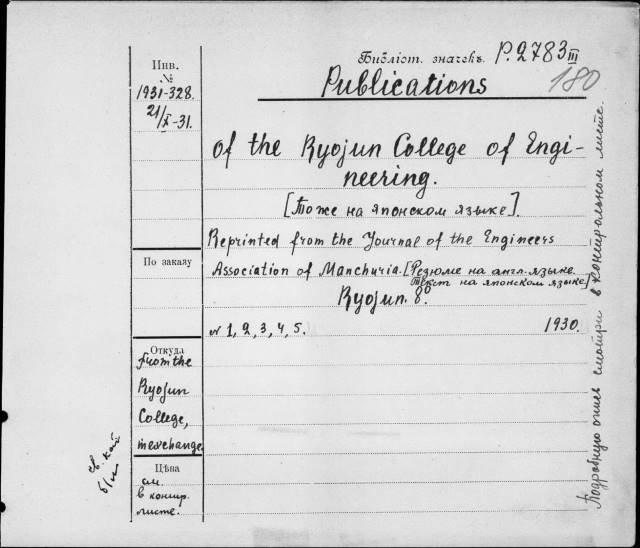 Инв.
№
1931-328.
21/X-31.
Библіот. значекъ. P.2783 III
180
Publications
of the Ryojun College of Engi-
neering.
[Тоже на японском языке].
Reprinted from the Journal of the Engineers
По заказу
Association of Manchuria. [Резюме на англ. языке.
Текст на японском языке]
Ryojun. 8º.
№ 1, 2, 3, 4, 5. 1930.
Откуда
from the
Ryojun
College,
in exchange.
Цѣна
см.
в контр.
листе.
Подробную опись смотри в контрольном листе.